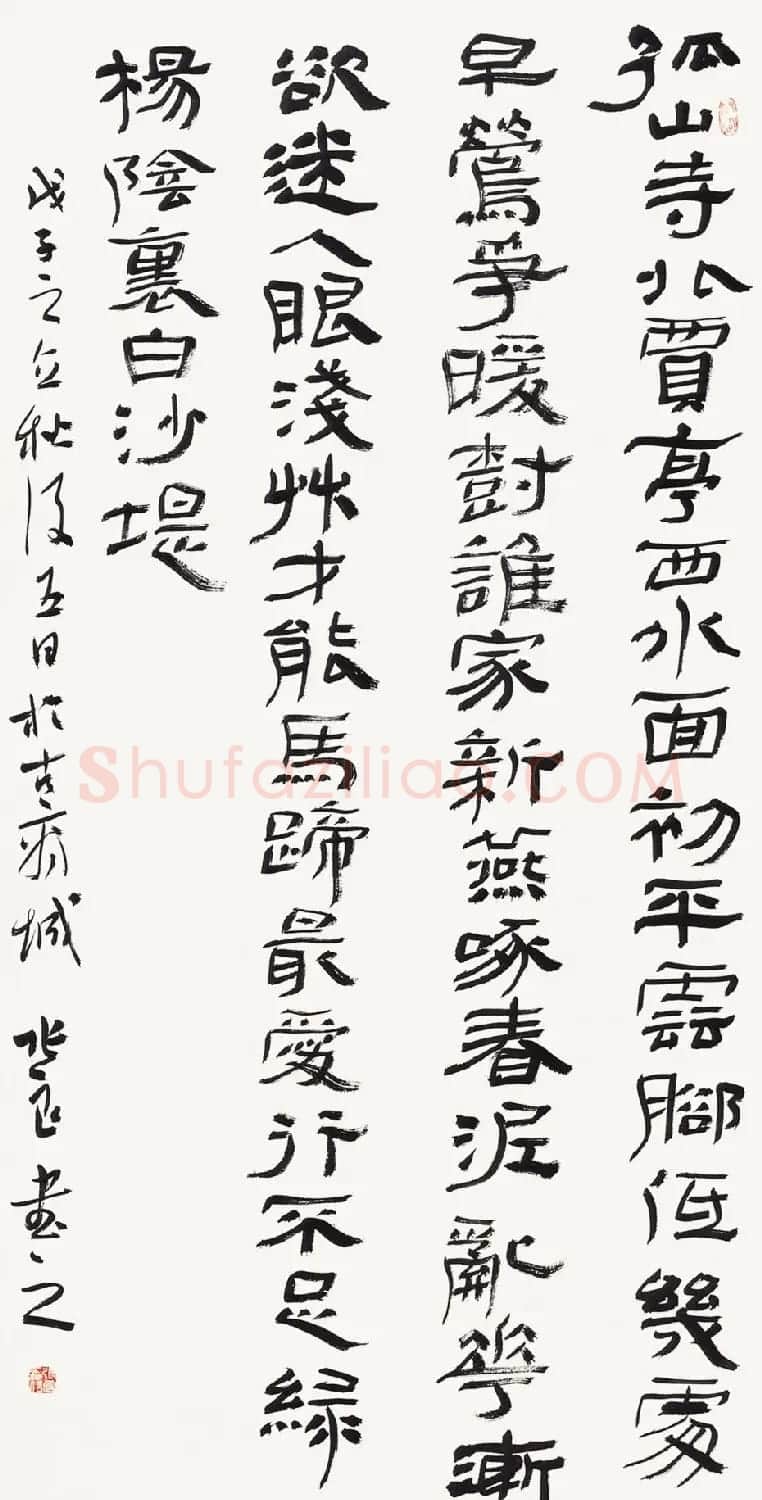 孤山寺北賈亭西水面初平雲腳低幾處
早鶯爭暖樹誰家新燕啄春泥亂花漸
欲迷人眼淺草才能馬蹄最愛行不足綠
楊陰裏白沙堤
戊子之立秋後五日於古 城 書之
Shufaziliao.COM